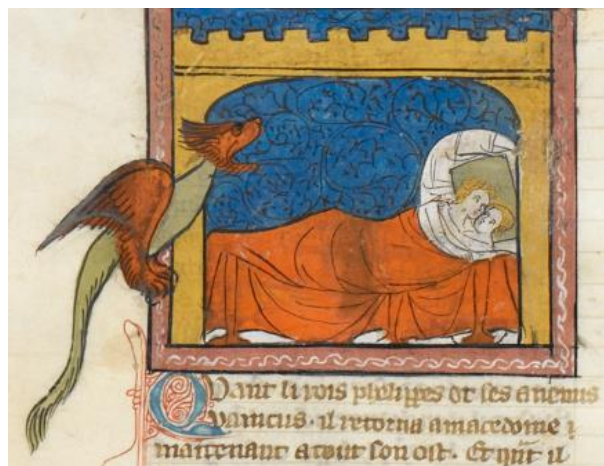 Quant li rois phelippes ot ses anemis
vaincus. il retorna a macedoine ⁊
maintenant a tout son ost. Et qnt il